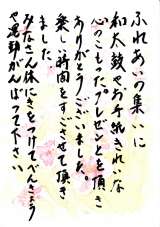 ふれあいの集いに
和太鼓やお手紙きれいな
心のこもったプレゼントを頂き
ありがとうございました。
楽しい時間をすごさせて頂き
ました
みなさん体にきをつけてべんきょう
や運動がんばって下さい